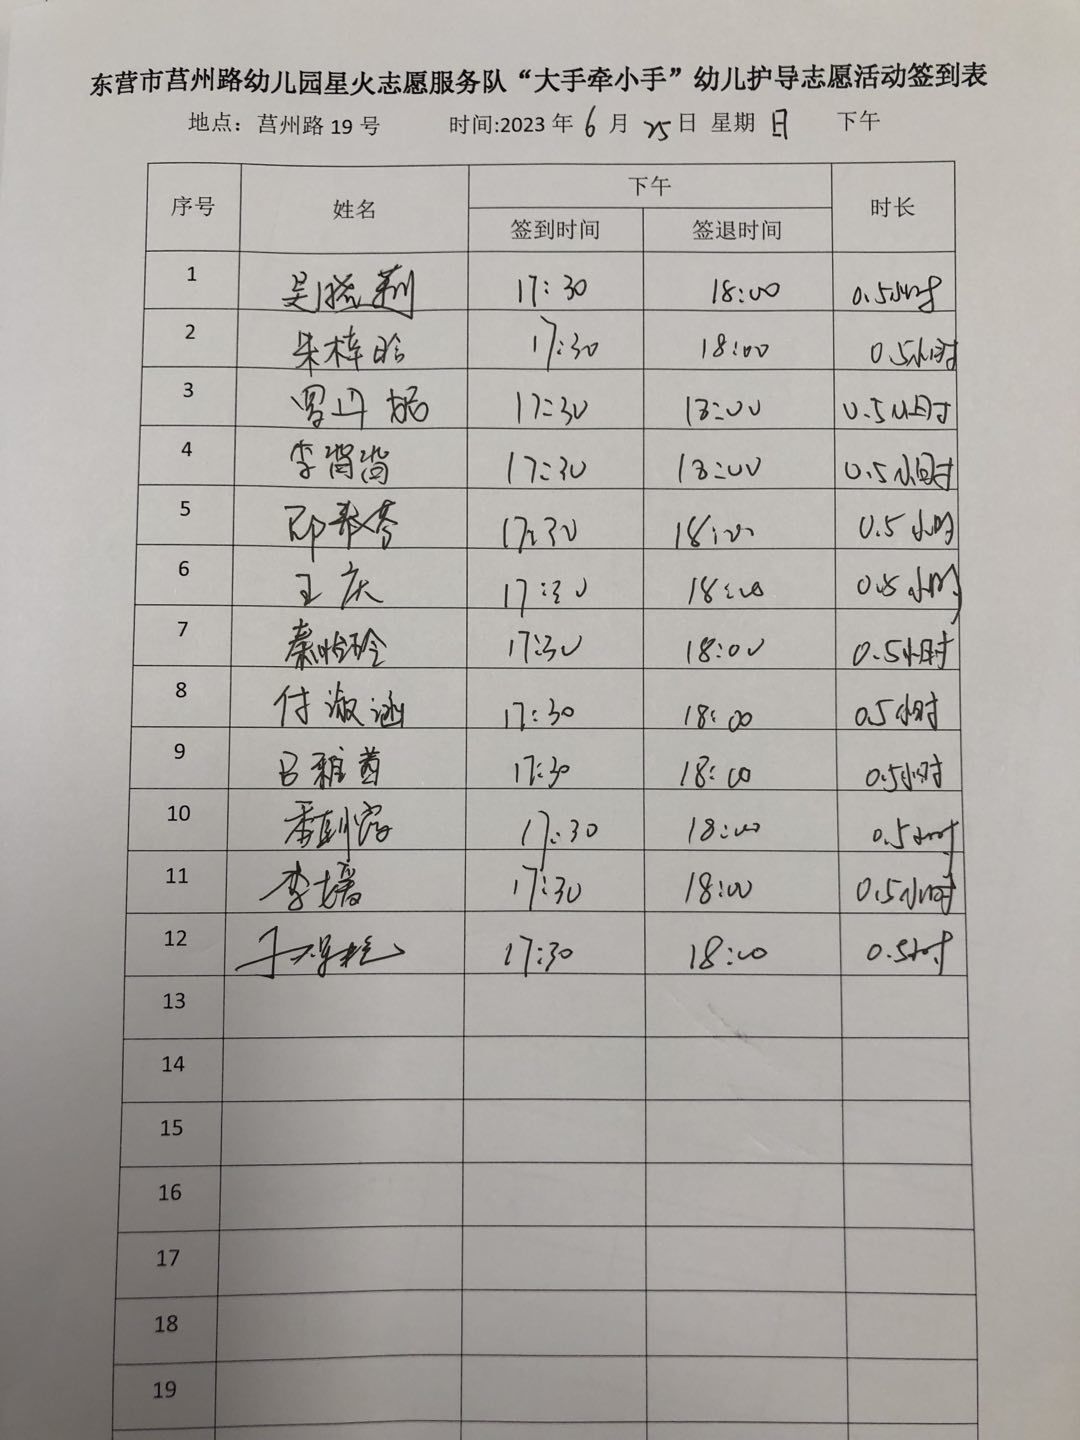 东营市莒州路幼儿园星火志愿服务队“大手牵小手”幼儿护导志愿活动签到表
地点：莒州路 19 号 时间:2023 年 6 月 25 日 星期 日 下午
序号 姓名 下午 时长
签到时间 签退时间
1 17:30 18:00 0.5小时
2 朱梓晗 17:30 18:00 0.5小时
3 17:30 18:00 0.5小时
4 李 17:30 18:00 0.5小时
5 17:30 18:00 0.5小时
6 王庆 17:30 18:00 0.5小时
7 17:30 18:00 0.5小时
8 付淑涵 17:30 18:00 0.5小时
9 吕雅 17:30 18:00 0.5小时
10 17:30 18:00 0.5小时
11 李媛 17:30 18:00 0.5小时
12 17:30 18:00 0.5小时
13
14
15
16
17
18
19